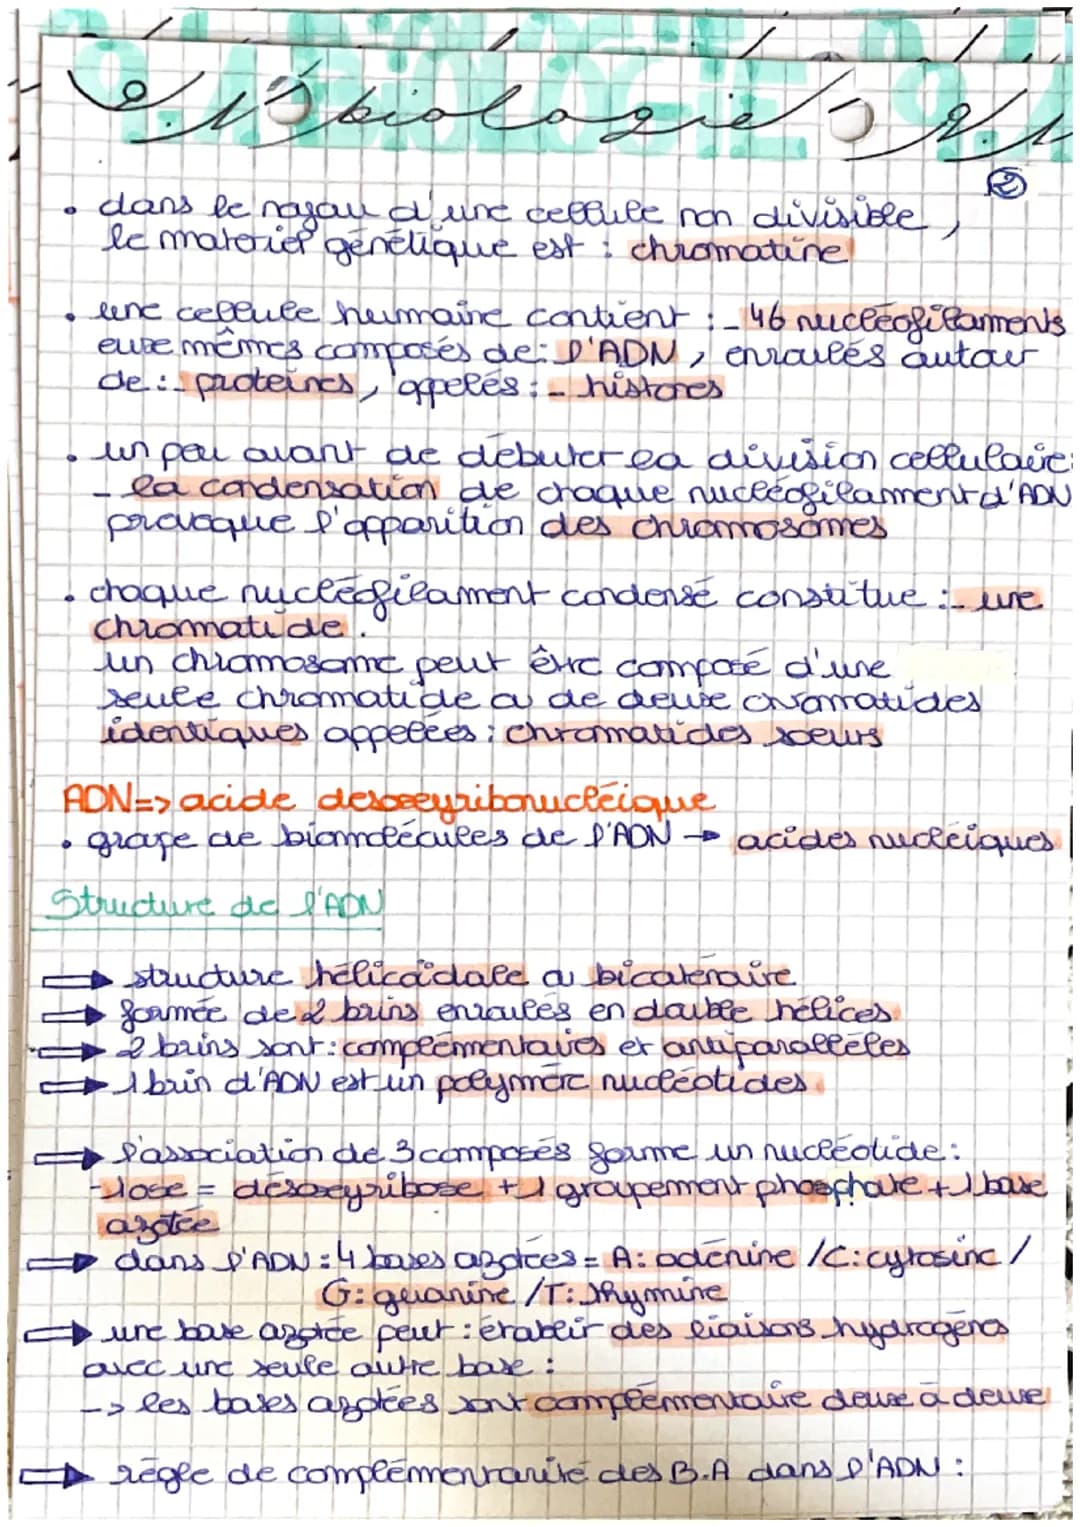 9.1 BIOLOGIE 9.1
9.1 biologie 9.1
②
• dans le noyau d'une cellule non divisible,
le materiel génétique est : chromatine
• une cellule humaine contient : - 46 nucléofilaments
eux mêmes composés de : l'ADN, enroulés autour
de : - proteines, appelés : - histones
• un peu avant de débuter la division cellulaire:
- la condensation de chaque nucléofilament d'ADN
provoque l'apparition des chromosomes
• chaque nucléofilament condensé constitue : - une
chromatide.
un chromosome peut être composé d'une
seule chromatide ou de deux chromatides
identiques appelées : chromatides soeurs
ADN=> acide desoxyribonucléique
• groupe de biomolécules de l'ADN → acides nucléiques
Structure de l'ADN
⇒ structure hélicoïdale ou bicaténaire
⇒ formée de 2 brins enroulés en double hélices
⇒ 2 brins sont : complémentaires et antiparallèles
⇒ 1 brin d'ADN est un polymère nucléotides
⇒ l'association de 3 composés forme un nucléotide :
- 1 ose = désoxyribose + 1 groupement phosphate + 1 base
azotée
⇒ dans l'ADN : 4 bases azotées = A : adénine / C : cytosine /
G : guanine / T : thymine
⇒ une base azotée peut : établir des liaisons hydrogènes
avec une seule autre base :
-> les bases azotées sont complémentaire deux à deux
⇒ règle de complémentarité des B.A dans l'ADN :